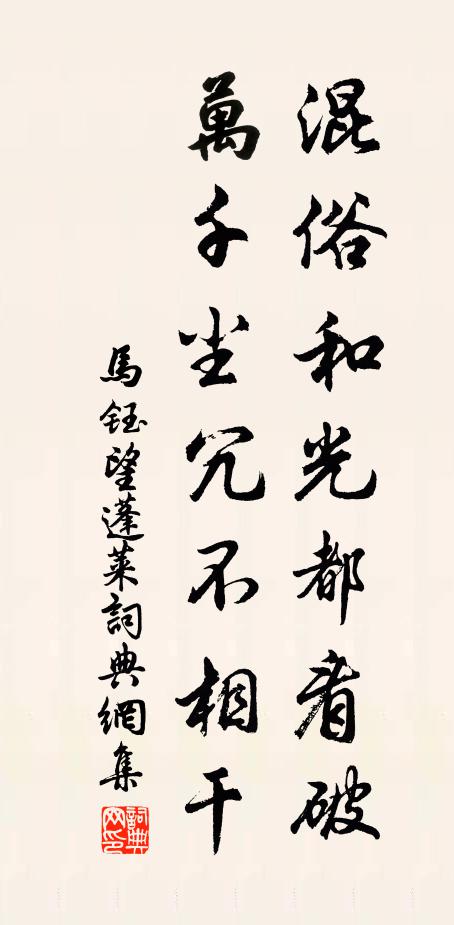 混俗和光都看破
萬千尘冗不相干
馬鈺望蓬萊詞典網集
詞典
网印